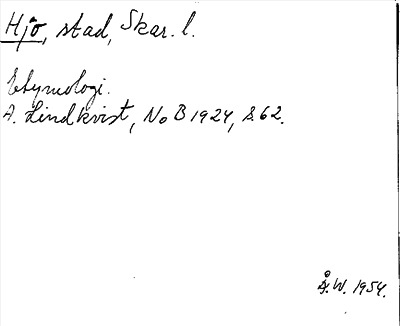 Hjo, stad, Skar. l.
Etymologi.
A. Lindkvist, NoB 1924, s. 62.
Å.W. 1954.